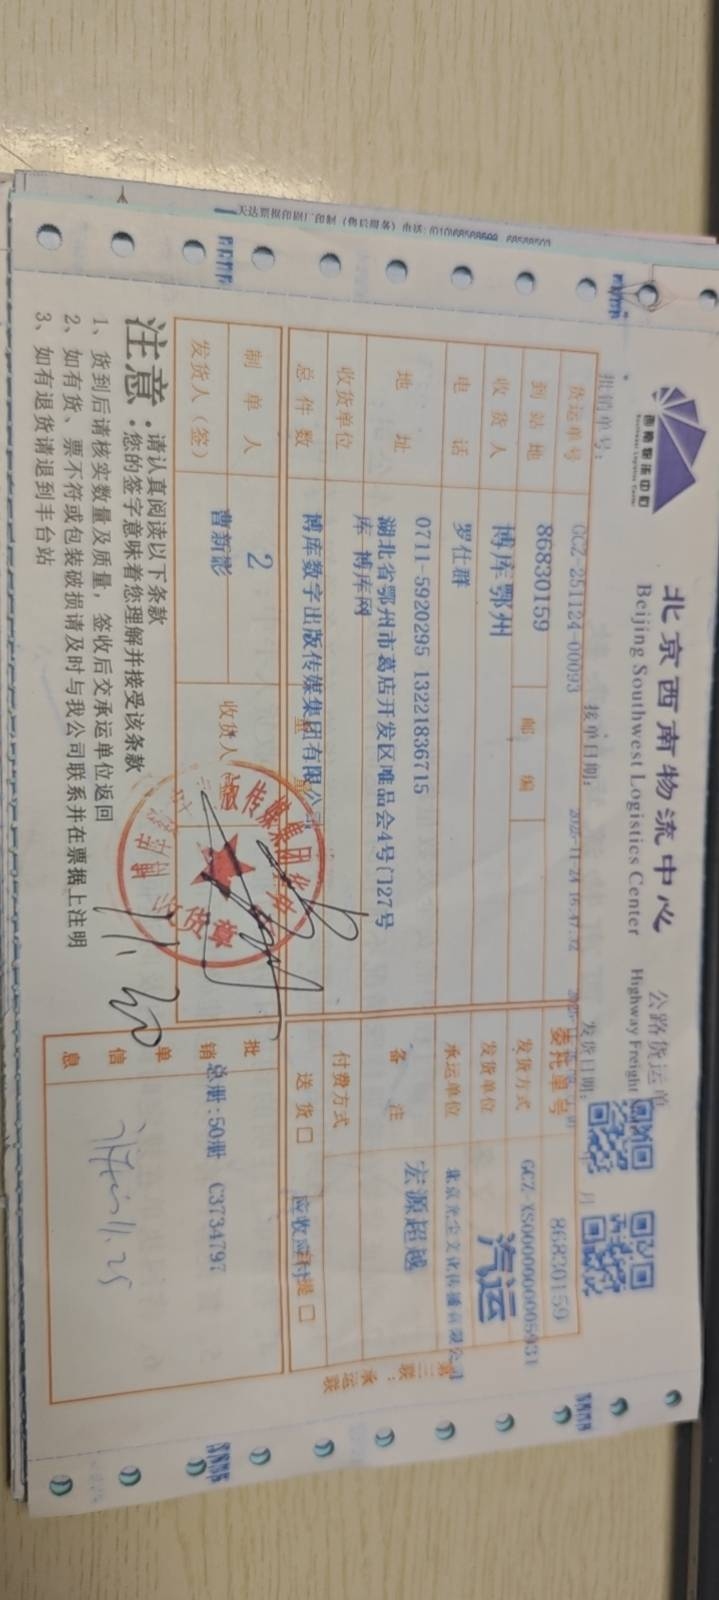 天达票据印刷厂印制(售后服务)电话:(010)68568699
西南物流中心
Southwest Logistics Center
北京西南物流中心
Beijing Southwest Logistics Center
公路货运单
Highway Freight
报销单号:
GCZ-251124-00093
接单日期:
2025-11-24 16:47:32
发货日期:
年 月
货运单号
86830159
委托单号
86830159
到站地
博库鄂州
邮编
发货方式
GCZ-XS0000000005931
汽运
收货人
罗仕群
发货单位
北京光尘文化传播有限公司
电话
0711-5920295 13221836715
承运单位
宏源超越
地址
湖北省鄂州市葛店开发区唯品会4号门27号
库 博库网
备注
收货单位
博库数字出版传媒集团有限公司
付费方式
应收应付
总件数
2
送货□
提□
制单人
曹新影
收货人
发货人(签)
批销单信息
总册:50册 C3734797
11.30
11.25
收货章
第三联:承运联
注意:
请认真阅读以下条款
您的签字意味着您理解并接受该条款
1、货到后请核实数量及质量,签收后交承运单位返回
2、如有货、票不符或包装破损请及时与我公司联系并在票据上注明
3、如有退货请退到丰台站